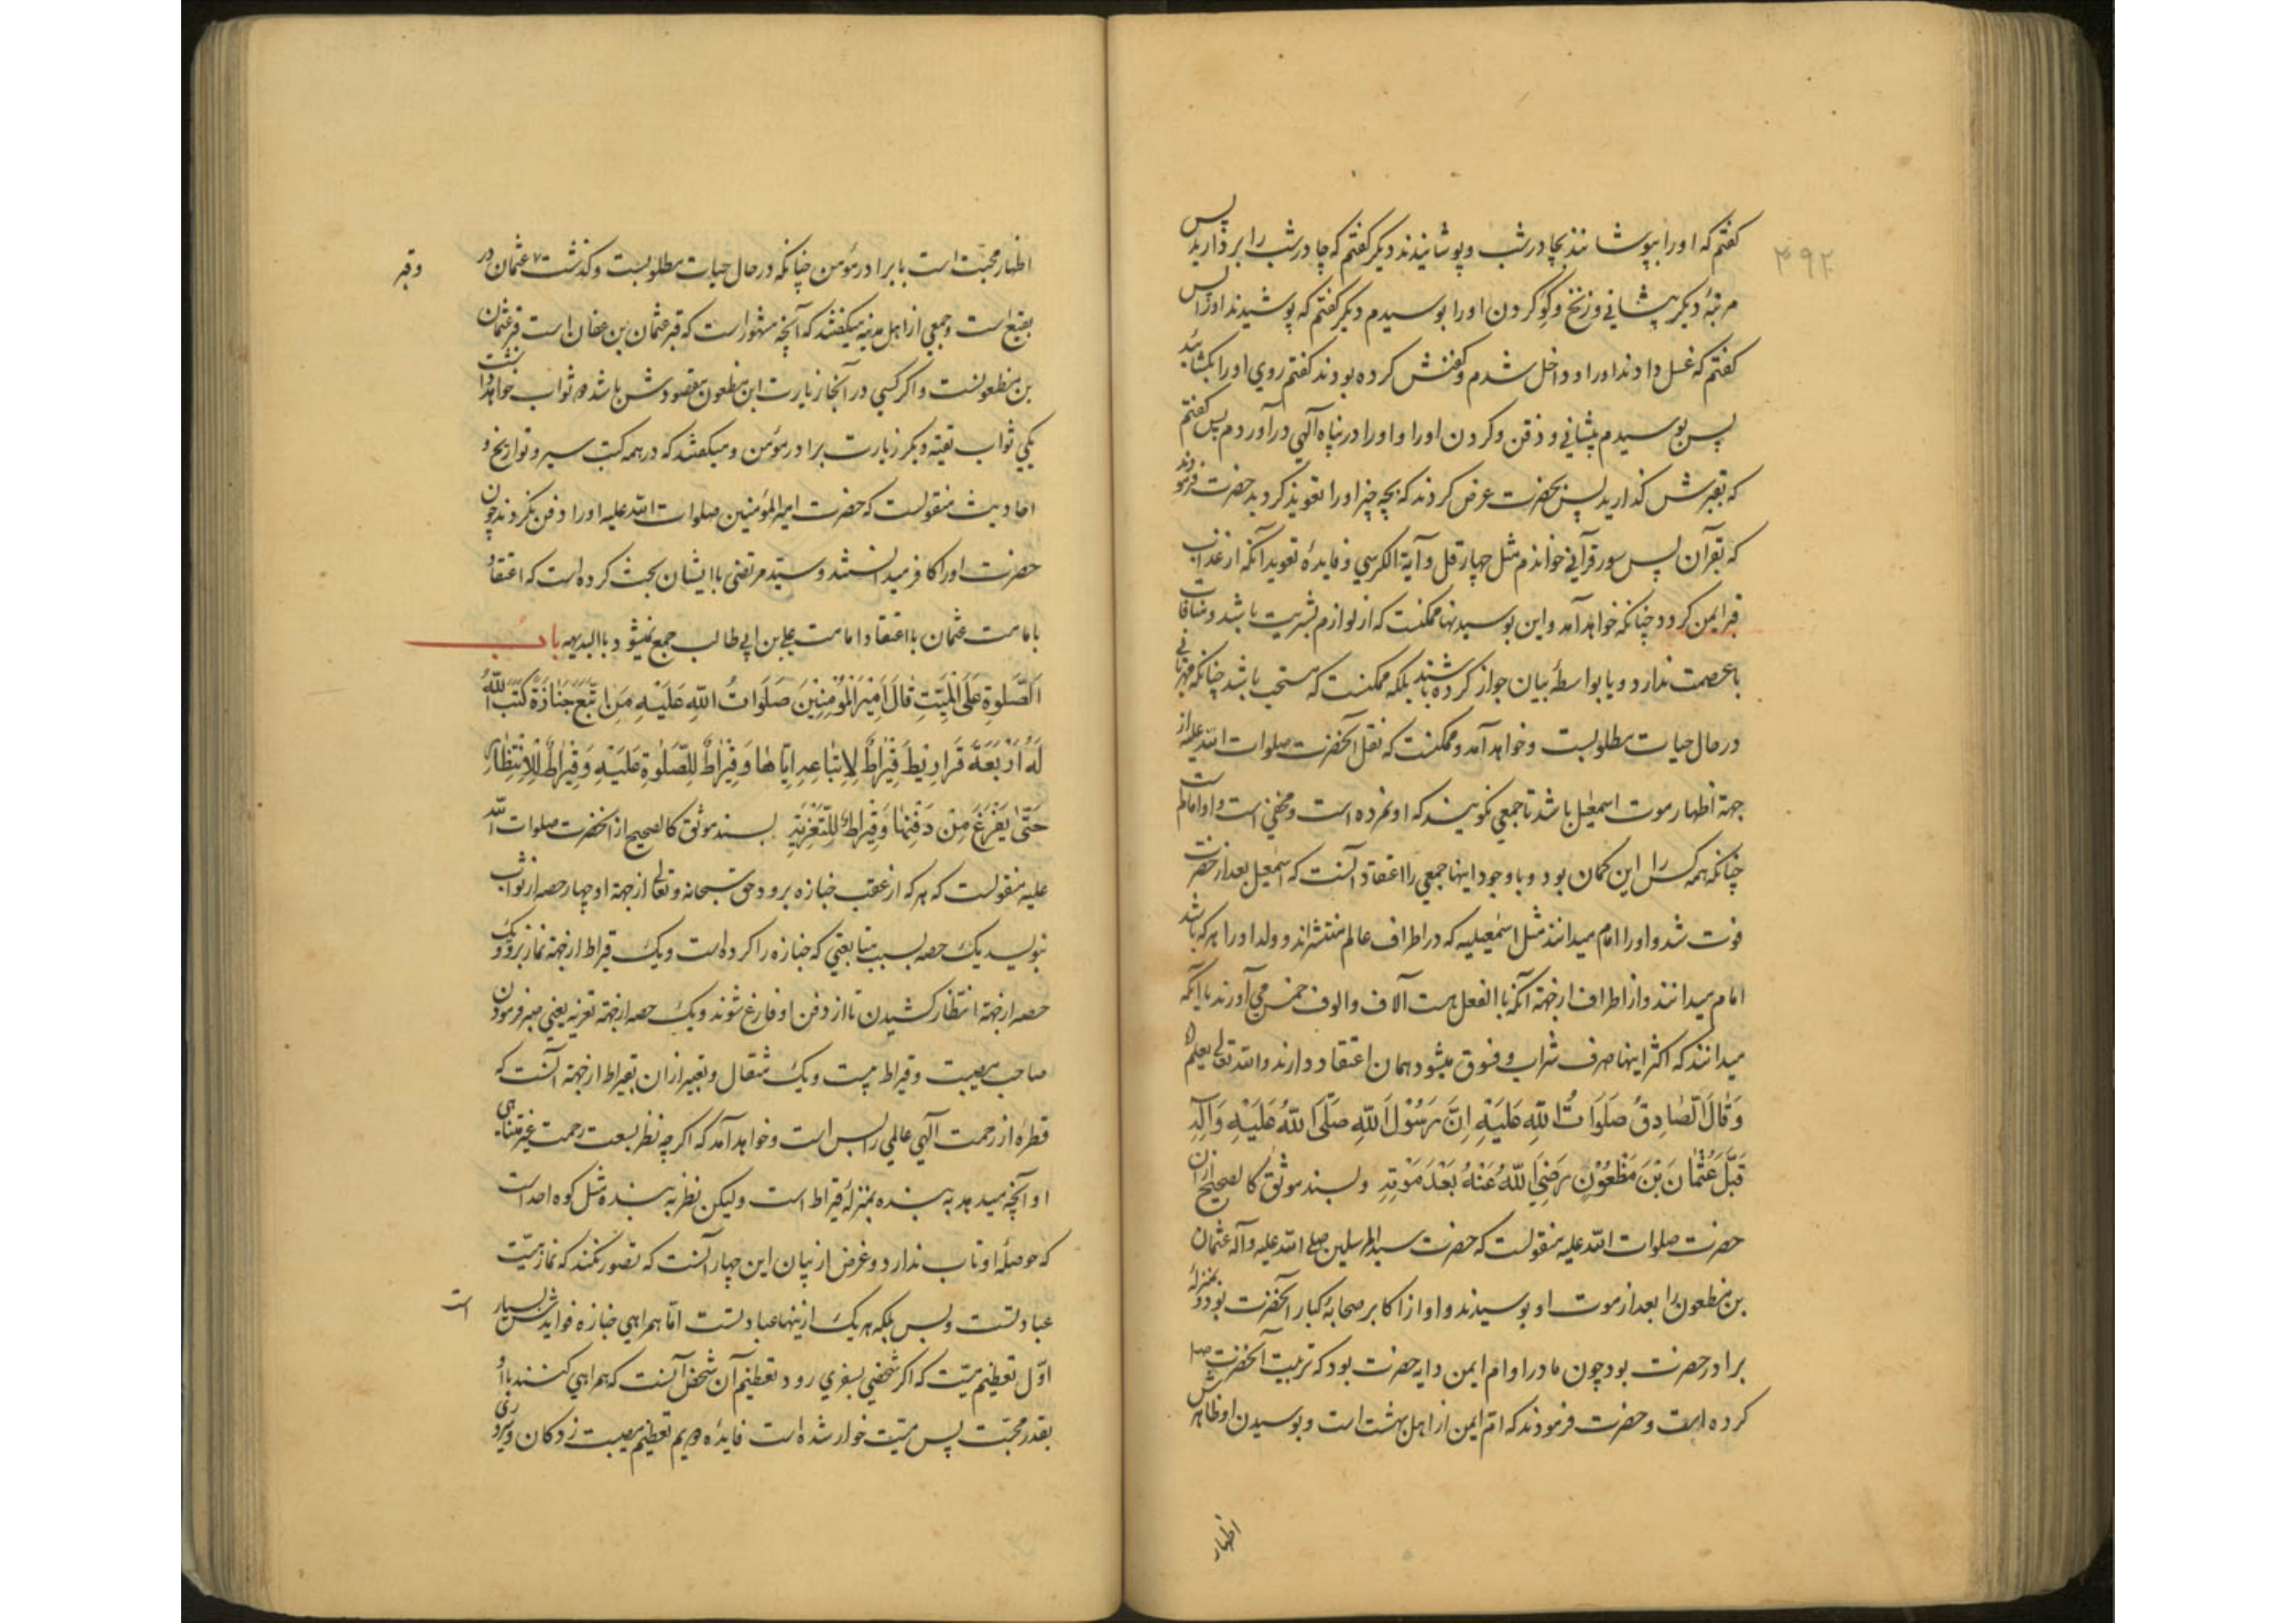 ۳۹۲
کفتم که اورا بپوشانند بچادرشب و پوشانیدند دیکر کفتم که چادرشب را بردارید پس
مرتبهٔ دیکر پیشانی و زنخ و کو کردن اورا بوسیدم دیکر کفتم که پوشیدند اورا پس
کفتم که غسل دادند اورا و داخل شدم و کفنش کرده بودند کفتم روی اورا بکشائید
پس بوسیدم پیشانی و ذقن و کردن اورا و اورا در پناه آلهی درآوردم پس کفتم
که بقبرش کذارید پس بحضرت عرض کردند که بچه چیز اورا تعویذ کردید حضرت فرمودند
که بقرآن پس سور قرآنی خواندم مثل چهار قل و آیة الکرسی و فایدهٔ تعویذ آنکه از عذاب
قبر ایمن کردد چنانکه خواهد آمد و این بوسیدنها ممکنست که از لوازم بشریت باشد و منافات
با عصمت ندارد و یا بواسطهٔ بیان جواز کرده باشند بلکه ممکنست که مستحب باشد چنانکه مهربانی
در حال حیات مطلوبست و خواهد آمد و ممکنست که نقل آنحضرت صلوات الله علیه از
جهة اظهار موت اسمعیل باشد تا جمعی نکویند که او نمرده است و مخفی است و او امام است
چنانکه همه کس را این کمان بود و با وجود اینها جمعی را اعتقاد آنست که اسمعیل بعد از حضرت
فوت شد و اورا امام میدانند مثل اسمعیلیه که در اطراف عالم منتشراند و ولد اورا هر که باشد
امام میدانند و از اطراف ازجهة آنکه باالفعل هست آلاف و الوف خمس می آورند با آنکه
میدانند که اکثر اینها صرف شراب و فسوق میشود همان اعتقاد دارند والله تعالی یعلم
وَقَالَ الصَّادِقُ صَلَوَاتُ اللهِ عَلَيْهِ اِنَّ رَسُوْلَ اللهِ صَلَّی اللهُ عَلَيْهِ وَآلِهِ
قَبَّلَ عُثْمَانَ بْنَ مَظْعُوْنٍ رَضِیَ اللهُ عَنْهُ بَعْدَ مَوْتِهِ و بسند موثق کالصحیح از آن
حضرت صلوات الله علیه منقولست که حضرت سید المرسلین صلی الله علیه وآله عثمان
بن مظعون را بعد از موت او بوسیدند و او از اکابر صحابهٔ کبار آنحضرت بود و بمنزلهٔ
برادر حضرت بود چون مادر او ام ایمن دایه حضرت بود که تربیت آنحضرت صلعم
کرده است و حضرت فرمودند که ام ایمن از اهل بهشت است و بوسیدن او ظاهرش
اظهار
اظهار محبت است با برادر مؤمن چنانکه در حال حیات مطلوبست و کذشت عثمان در
وقبر
بقیع است و جمعی از اهل مدینه میکفتند که آنچه مشهور است که قبر عثمان بن عفان است قبر عثمان
بن مظعونست و اکر کسی در آنجا زیارت ابن مظعون مقصودش باشد دو ثواب خواهد داشت
یکی ثواب تقیه و دیکر زیارت برادر مؤمن و میکفتند که در همه کتب سیر و تواریخ و
احادیث منقولست که حضرت امیر المؤمنین صلوات الله علیه اورا دفن نکردند چون
حضرت اورا کافر میدانستند و سید مرتضی با ایشان بحث کرده است که اعتقاد
بامامت عثمان با اعتقاد امامت علی بن ابی طالب جمع نمیشود باالبدیهه باب
اَلصَّلٰوةِ عَلَی الْمَيِّتِ قَالَ اَمِيْرُ الْمُؤْمِنِيْنَ صَلَوَاتُ اللهِ عَلَيْهِ مَنِ اتَّبَعَ جَنَازَةً كَتَبَ اللهُ
لَهُ اَرْبَعَةَ قَرَارِيْطَ قِيْرَاطٌ لِاِتِّبَاعِهِ اِيَّاهَا وَ قِيْرَاطٌ لِلصَّلٰوةِ عَلَيْهِ وَ قِيْرَاطٌ لِلْاِنْتِظَارِ
حَتّٰی يَفْرُغَ مِنْ دَفْنِهَا وَ قِيْرَاطٌ لِلتَّعْزِيَةِ بسند موثق کالصحیح از آنحضرت صلوات الله
علیه منقولست که هر که از عقب جنازه برود حق سبحانه و تعالی ازجهة او چهار حصه از ثواب
نبویسد یک حصه بسبب متابعتی که جنازه را کرده است و یک قیراط ازجهة نماز برو و یک
حصه ازجهة انتظار کشیدن تا از دفن او فارغ شوند و یک حصه ازجهة تعزیه یعنی صبر فرمودن
صاحب مصیبت و قیراط بیست و یک مثقال و تعبیر از آن بقیراط ازجهة آنست که
قطرهٔ از رحمت آلهی عالمی را بس است و خواهد آمد که اکرچه نظر بسعت رحمت غیر متناهی
او آنچه میدهد به بنده بمنزلهٔ قیراط است ولیکن نظر به بنده مثل کوه احد است
که حوصلهٔ او تاب ندارد و غرض از بیان این چهار آنست که تصور نکنند که نماز میت
عبادتست و بس بلکه هر یک ازینها عبادتست امّا همراهی جنازه فوایدش بسیار
است
اوّل تعظیم میّت که اکر شخصی بسفری رود تعظیم آن شخص آنست که همراهی کنند با او
بقدر محبّت پس میّت خوار شده است فایدهٔ دویم تعظیم مصیبت زدکان و پیروی